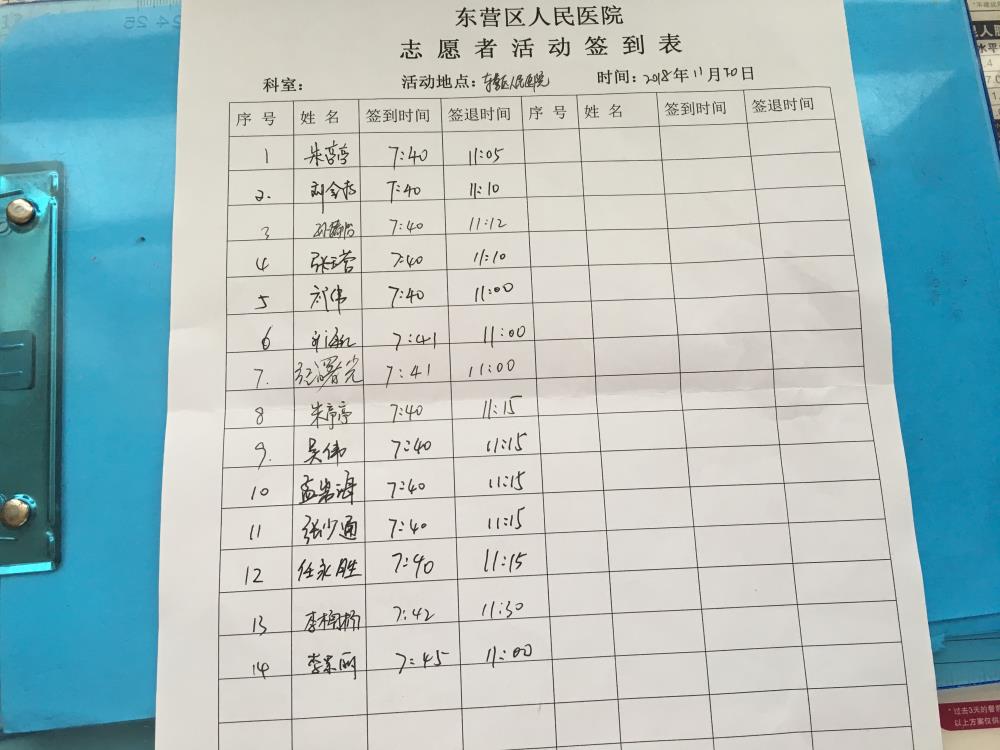 东营区人民医院
志愿者活动签到表
科室: 活动地点:东营区人民医院 时间:2018年11月30日
序号 姓名 签到时间 签退时间 序号 姓名 签到时间 签退时间
1 朱亭亭 7:40 11:05
2. 7:40 11:10
3 7:40 11:12
4 张营 7:40 11:10
5 祁伟 7:40 11:00
6 7:41 11:00
7. 张曙光 7:41 11:00
8 朱亭亭 7:40 11:15
9. 吴伟 7:40 11:15
10 孟常海 7:40 11:15
11 张少通 7:40 11:15
12 任永胜 7:40 11:15
13 李梅 7:42 11:30
14 李丽 7:45 11:00
*过去3天的餐前
以上方案仅供
水平